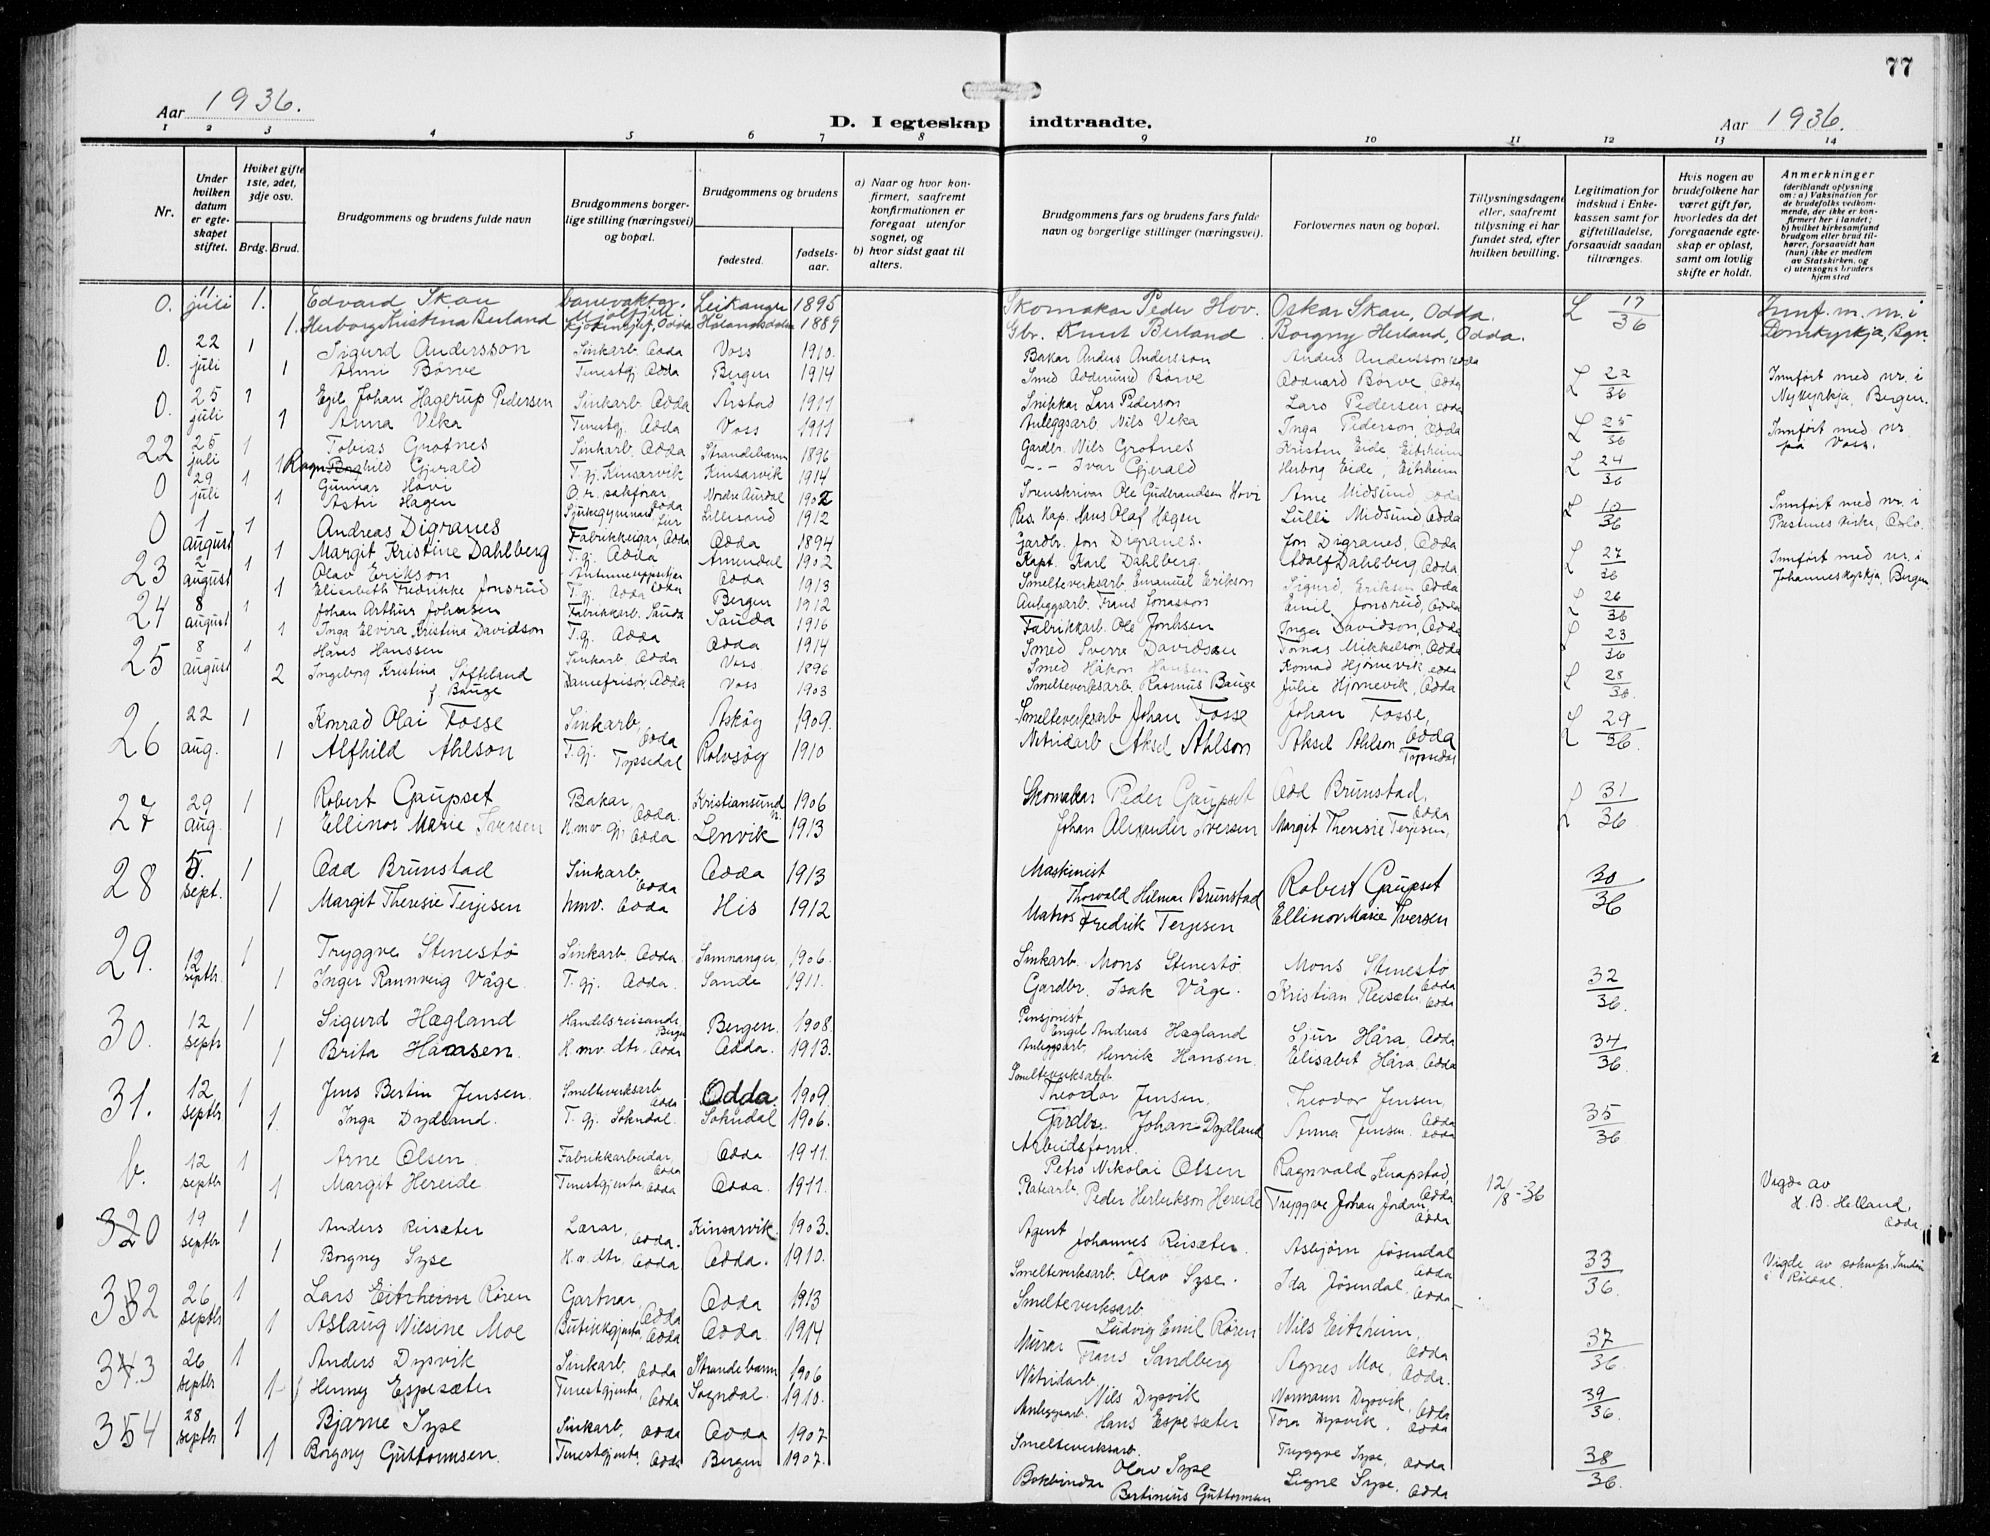 77
Aar 1936.
D. I egteskap indtraadte.
Aar 1936.
1 2 3 4 5 6 7 8 9 10 11 12 13 14
Nr.
Under hvilken datum er egte-skapet stiftet.
Hviket gifte 1ste, 2det, 3dje osv.
Brdg. Brud.
Brudgommens og brudens fulde navn
Brudgommens borger-lige stilling (næringsvei) og bopæl.
Brudgommens og brudens
fødested.
fødsels-aar.
a) Naar og hvor kon-firmert, saafremt konfirmationen er foregaat utenfor sognet, og
b) hvor sidst gaat til alters.
Brudgommens fars og brudens fars fulde navn og borgerlige stillinger (næringsvei).
Forlovernes navn og bopæl.
Tillysningsdagene eller, saafremt tillysning ei har fundet sted, efter hvilken bevilling.
Legitimation for indskud i Enke-kassen samt for giftetilladelse, forsaavidt saadan tiltrænges.
Hvis nogen av brudefolkene har været gift før, hvorledes da det foregaaende egte-skap er opløst, samt om lovlig skifte er holdt.
Anmerkninger
(deriblandt oplysning om: a) Vaksination for de brudefolks vedkom-mende, der ikke er kon-firmert her i landet;
b) hvilket kirkesamfund brudgom eller brud til-hører, forsaavidt han (hun) ikke er medlem av Statskirken, og
c) utensogns bruders hjem sted
0. 11 juli 1. Edvard Skau banevaktar. Mjølfjell Leikanger 1895 Skomakar Peder Hov. Oskar Skau, Odda. L 17/36 Innf. m. nr. i
1. Herborg Kristina Berland Odda 1889 Gbr. Knut Berland Borgny Herland, Odda. Domkyrkja, Bgn.
0. 22 juli 1 Sigurd Andersson Sinkarb. Odda Voss 1910. Bakar Anders Andersson Anders Andersson Odda
1 Anni Børve Tenestgj. Odda Bergen 1914 Smed Oddmund Børve Oddvard Børve Odda L 22/36 Innført med nr. i Nykyrkja, Bergen.
0. 25 juli 1 Egil Johan Hagerup Pedersen Sinkarb. Odda Årstad 1911 Snikkar Lars Pederson Lars Pedersen Odda
1 Anna Veka Tenestgj. Odda Voss 1911 Anleggsarb. Nils Veka Inga Pederson, Odda L 25/36 Innført med nr på Voss.
22 25 juli 1 Tobias Grotnes Sinkarb. Odda Strandebarm 1896 Gardbr. Nils Grotnes Kristen Eide, Eitrheim
1 Ragnhild Gjerald T. gj. Kinsarvik Kinsarvik 1914 - - Ivar Gjerald Herborg Eide, Eitrheim L 24/36
0 29 juli 1 Gunnar Hovi O. r. sakførar, Odda Nordre Aurdal 1902 Sorenskrivar Ole Gudbrandsen Hovi Arne Midsund, Odda
1 Astri Hagen Lillesand 1912 Res. Kap. Hans Olaf Hagen Lulli Midsund, Odda L 10/36 Innført med nr. i Prestenes kirke, Oslo.
0 1 august 1 Andreas Digranes Fabrikkeigar, Odda Odda 1894 Gardbr. Jon Digranes. Jon Digranes, Odda
1 Margit Kristine Dahlberg T. gj. Odda Arendal 1902 Kapt. Karl Dahlberg. Adolf Dahlberg Odda L 27/36 Innført med nr. i Johanneskyrkja, Bergen
23 2 august 1 Olav Erikson Odda Odda 1913 Smelteverksarb. Emanuel Erikson Sigurd Eriksen Odda
1 Elisabeth Fredrikke Jonsrud T. gj. Odda Bergen 1912 Anleggsarb. Frans Jonasson Emil Jonsrud, Odda L 26/36
24 8 august 1 Johan Arthur Johnsen Fabrikkarb. Sauda Sauda 1916 Fabrikkarb. Ole Jonhsen Inga Davidson, Odda
1 Inga Elvira Kristina Davidson T. gj. Odda Odda 1914 Smed Sverre Davidsen Tomas Mikkelson, Odda L 23/36
25 8 august 1 Hans Hanssen Sinkarb. Odda Voss 1896 Smed Håkon Hansen Konrad Hjørnevik Odda
2 Ingeborg Kristina Søfteland f. Bauge Damefrisør, Odda Voss 1903 Smelteverksarb. Rasmus Bauge Julie Hjørnevik, Odda L 28/36.
26 22 aug. 1 Konrad Olai Fosse Sinkarb. Odda Askøy 1909. Smelteverksarb Johan Fosse Johan Fosse, Odda L 29/36.
1 Alfhild Ahlson T. gj. Tyssedal Rolvsøy 1910 Nitridarb Aksel Ahlson Aksel Ahlson, Tyssedal
27 29 aug. 1 Robert Gaupset Bakar, Odda. Kristiansund n. 1906 Skomakar Peder Gaupset Odd Brunstad, Odda L 31/36
1 Ellinor Marie Iversen H.mv. gj. Odda Lenvik 1913 Johan Alexander Iversen Margit Theresie Terjesen,
28 5. sept. 1 Odd Brunstad Sinkarb. Odda Odda 1913 Maskinist Thorvald Hilmar Brunstad Robert Gaupset 30/36
1 Margit Theresie Terjesen hmv. Odda His 1912 Matros Fredrik Terjesen Ellinor Marie Iversen
29. 12 septbr. 1 Tryggve Stenestø Sinkarb. Odda Samnanger, 1906. Sinkarb. Mons Stenestø Mons Stenestø Odda 32/36.
1 Inger Rannveig Våge T. gj. Odda. Sande 1911. Gardbr. Isak Våge. Kristian Reisæter Odda
30. 12 septr 1 Sigurd Hægland Handelsreisande Bergen Bergen. 1908. Pensjonist Engel Andreas Hægland Sjur Håra, Odda 34/36.
1 Brita Hansen. H.mv. dtr. Odda Odda. 1913. Anleggsarb. Henrik Hansen. Elisabet Håra, Odda
31. 12 septbr 1 Jens Bertin Jensen. Smelteverksarb Odda Odda. 1909. Smelteverksarb Theodor Jensen. Theodor Jensen, Odda 35/36.
1. Inga Dydland. T. gj. Sokndal. Sokndal 1906. Gardbr. Johan Dydland Anna Jensen. Odda
b. 12 septbr 1 Arne Olsen Fabrikkarbeidar, Odda Odda 1911. Arbeidsform. Petro Nikolai Olsen Ragnvald Knapstad, Odda 12/8-36 Vigde av H. B. Helland, Odda
1 Margit Hereide Tenestgjenta, Odda Odda. 1911. Peder Herleikson Hereide Tryggve Johan Jordan, Odda
320 19 septbr 1 Anders Reisæter Lærar, Odda. Kinsarvik 1903. Agent Johannes Reisæter. Asbjørn Jøsendal Odda 33/36. Vigde av soknepr. i Røldal.
1 Borgny Syse H.v. dtr. Odda Odda. 1910. Smelteverksarb. Olav Syse. Ida Jøsendal, Odda
332 26 septbr 1 Lars Eitrheim Røren Gartnar, Odda Odda 1913 Smelteverksarb Ludvig Emil Røren Nils Eitrheim, Odda 37/36.
1 Aslaug Nicsine Moe Butikkgjenta, Odda Odda 1914 Murar Frans Sandberg Agnes Moe, Odda.
343 26 septbr 1 Anders Dysvik Sinkarb. Odda Strandebarm 1906 Nitridarb Nils Dysvik Normann Dysvik, Odda 39/36.
1 Henny Espesæter Tenestgjenta, Odda Sogndal. 1910. Anleggsarb. Hans Espesæter Tora Dysvik, Odda
354 28 septbr 1 Bjarne Syse Sinkarb. Odda Odda 1907 Smelteverksarb. Olav Syse Tryggve Syse, Odda 38/36.
1 Borgny Guttormsen. Tenestgjenta, Odda Bergen 1907. Bokbindar Bertinius Guttormsen Signe Syse, Odda